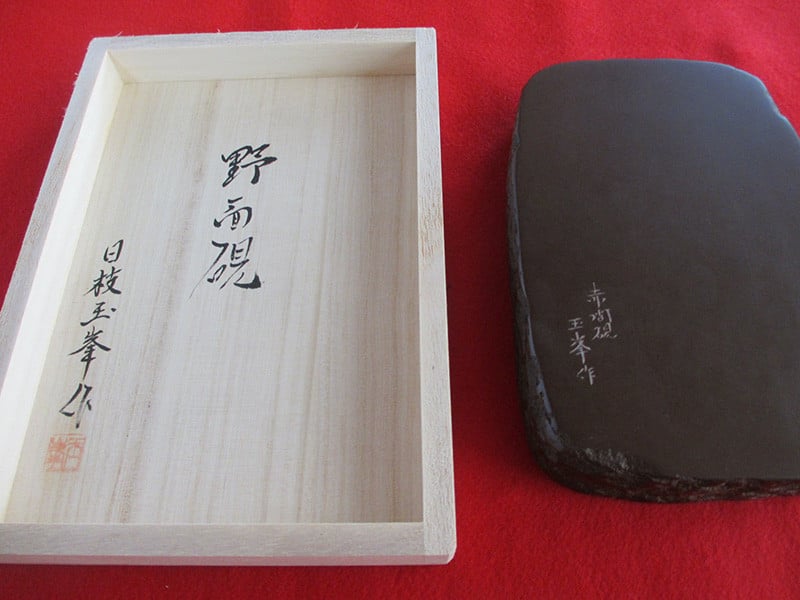 野面硯
日枝玉峯作
赤間硯
玉峯作